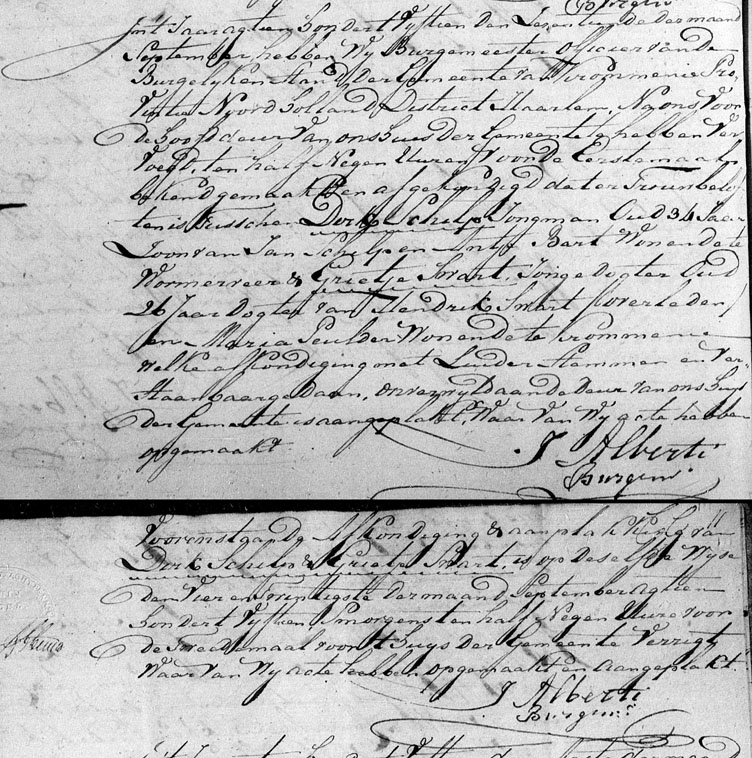 Burgem
Int Jaar agtien hondert Vyftien den Sesentiende der maand
September, hebben Wy Burgemeester officier van den
Burgelyken Stand der Gemeente van Krommenie Pro,
Vintie Noord Holland District Haarlem, Na ons Voor
de hoofddeur Van ons huis Der Gemeente te hebben Ver
Voegt, ten half Negen Uuren Voor de Eerstemaal
bekend gemaakt en afgekondigd dat er Trouwbelof
ten is tusschen Dirk Schelp Jongman Oud 34 Jaar
Zoon van Jan Schelp en Antje Bart Wonende te
Wormerveer & Grietje Smart, Jonge Dogter Oud
26 Jaar Dogter van Hendrik Smart (overleden)
en Maria Seulder Wonende te Krommenie
welke afkondiging met Luider Stemmen en Ver-
Staanbaar gedaan, onverwyld aan de Deur van ons huys
der Gemeente is aangeplakt, Waar Van Wy acte hebben
opgemaakt
J Alberti
Burgem.r
Voorenstaande Afkondiging & aanplakking van
Dirk Schelp & Grietje Smart, is op deselfde Wyse
den Vier en twintigste der maand September agtien
hondert Vyftien Smorgens ten half Negen Uure voor
de tweedemaal voor t huys der Gemeente Verrigt
Waar Van Wy acte hebben opgemaakt en Aangeplakt.
J Alberti
Burgem.r